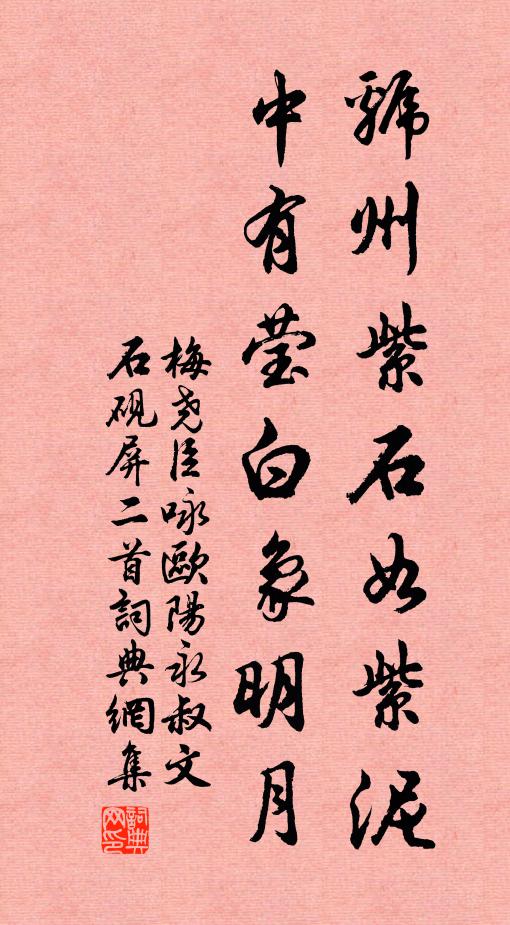 虢州紫石如紫泥
中有莹白象明月
梅尧臣咏歐陽永叔文
石硯屏二首詞典網集
詞典网印